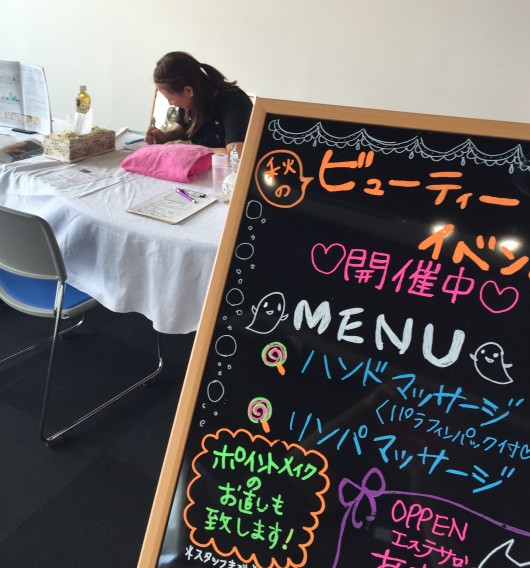 秋の
ビューティー
イベン
♡開催中♡
MENU
ハンドマッサージ
〈パラフィンパック付♡
リンパマッサージ
ポイントメイク
の
お直しも
致します!
*スタッフまで
OPPEN
エステサロ